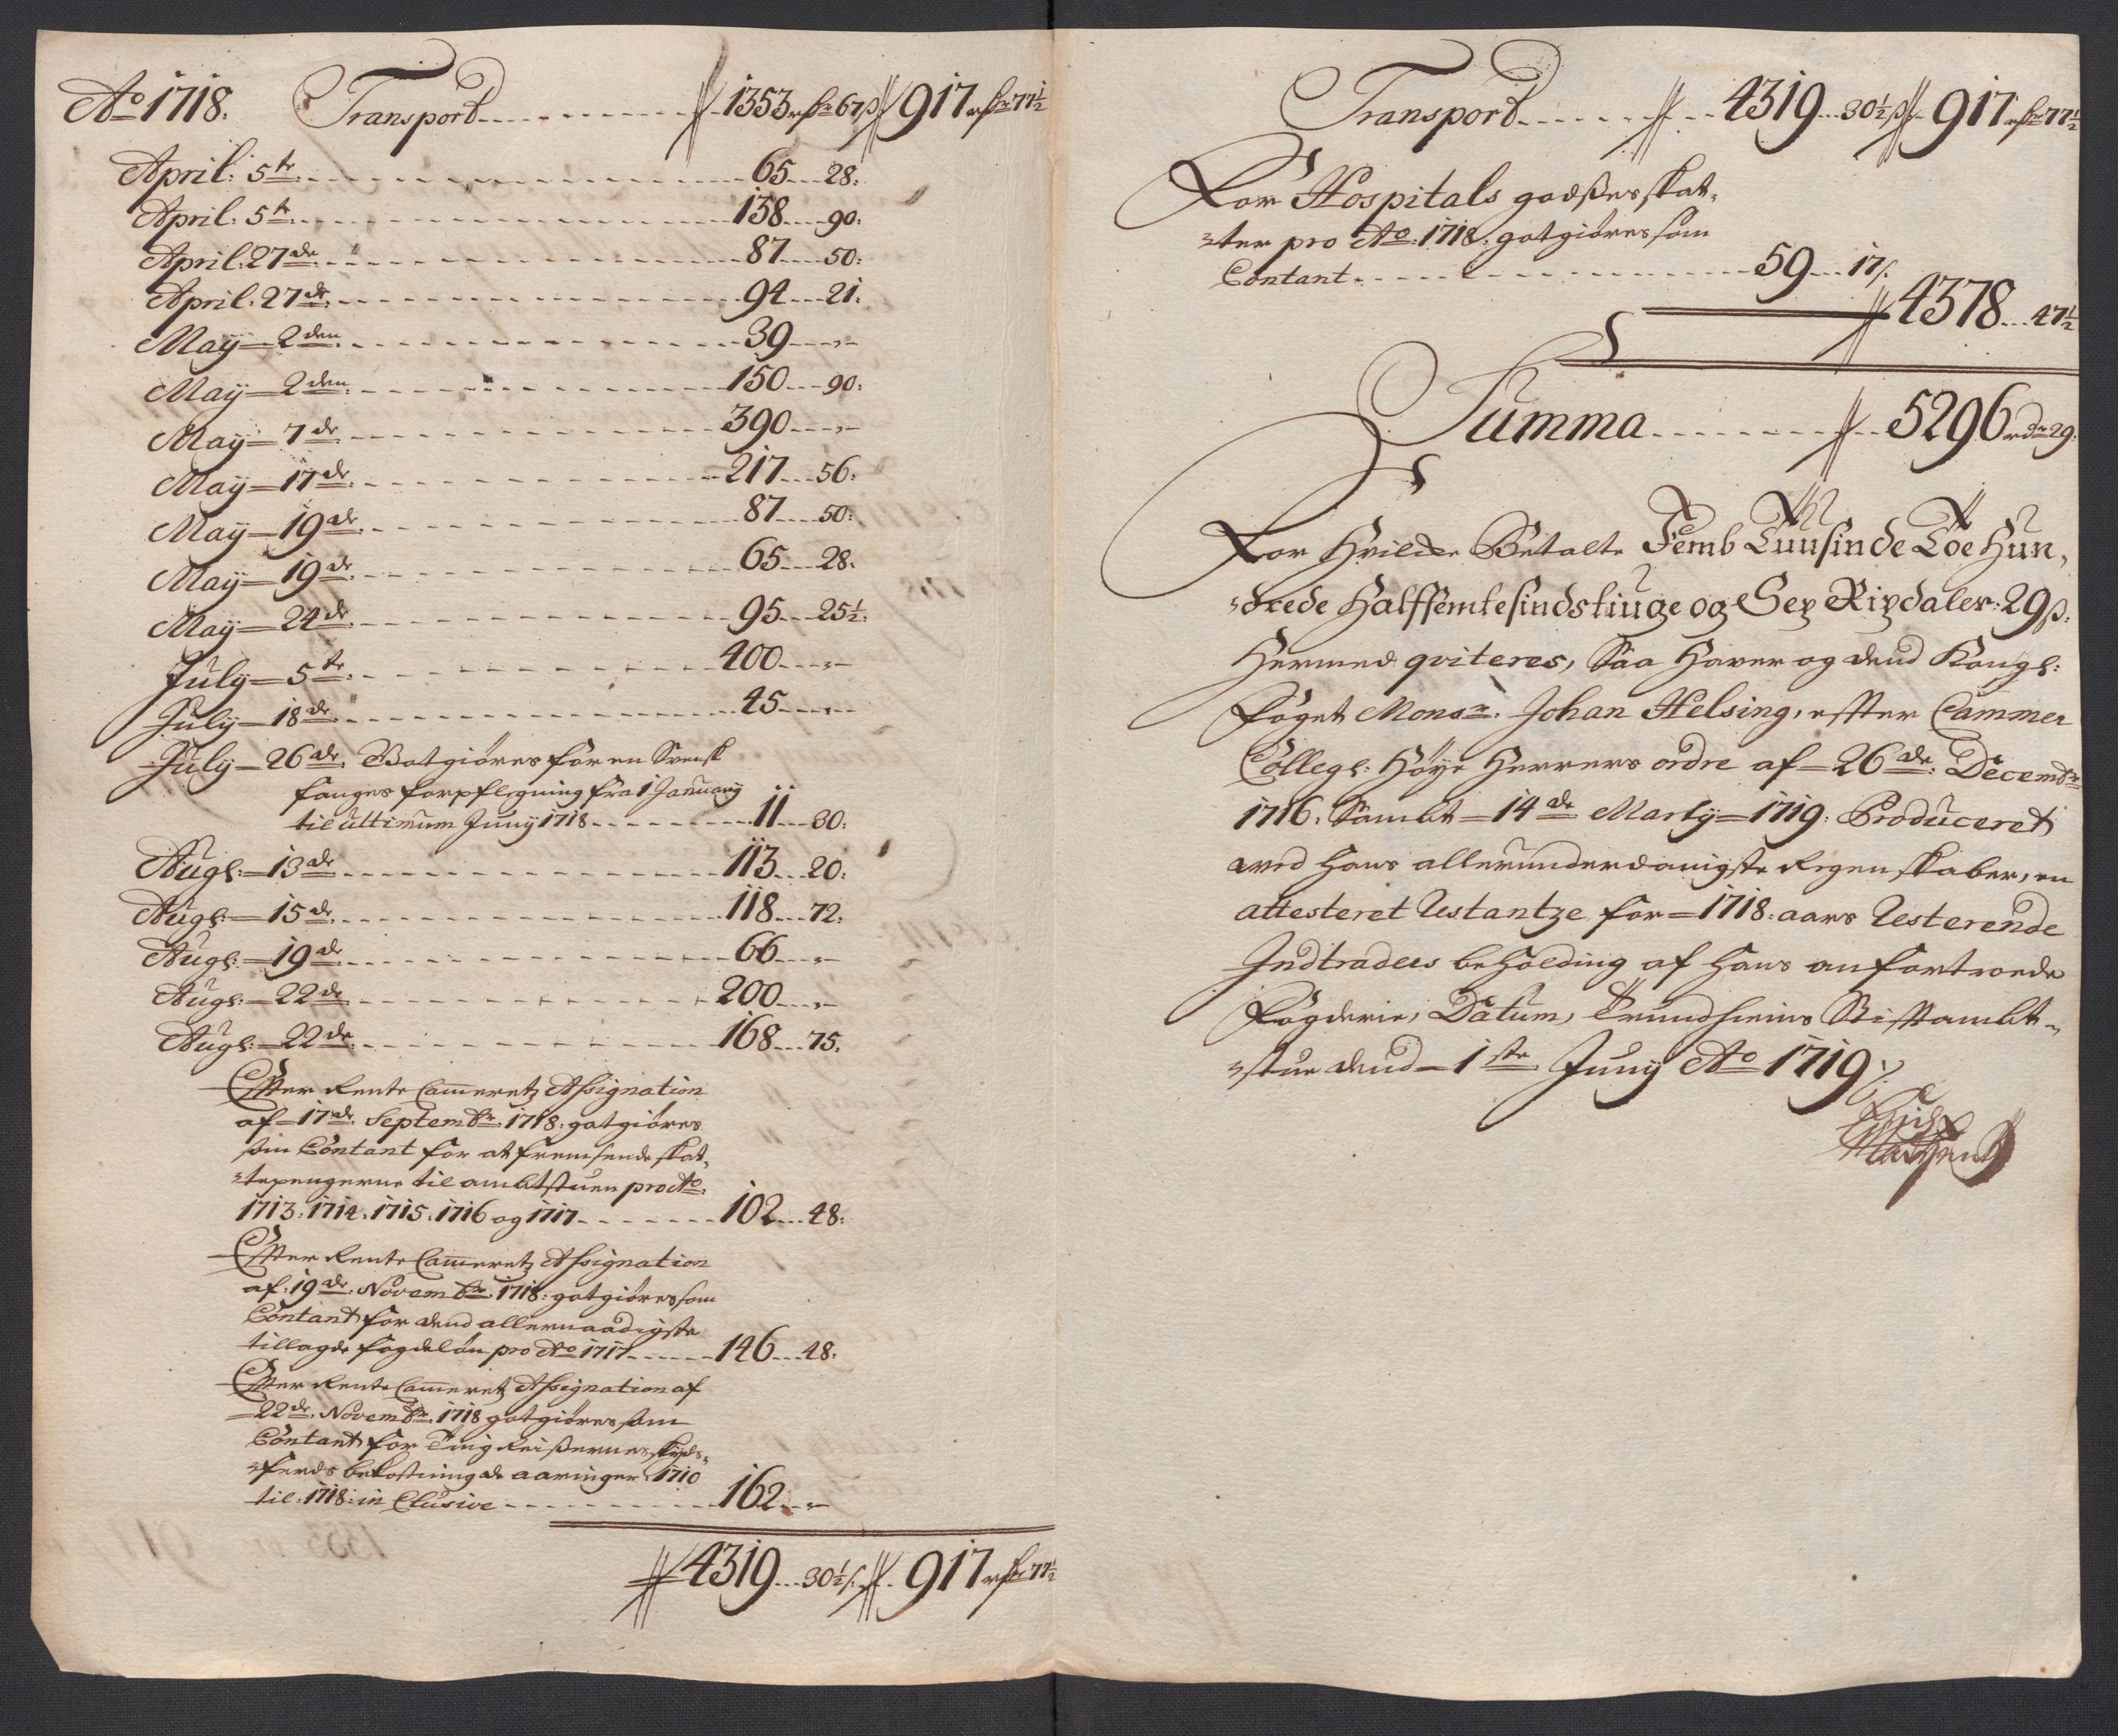 Ao 1718. Transport 1353 rdr 67ß 917 rdr 77½
April: 5te 65 28:
April: 5te 138 90:
April: 27de 87 50:
April: 27de 94 21:
May 2den 39
May 2den 150 90:
May 7de 390
May 17de 217 56:
May 19de 87 50:
May 19de 65 28:
May 24de 95 25½:
July 5te 400
July 18de 45
July 26de Godtgiøres for en Svensk
fanges forpflegning fra 1 January
til ultimum Juny 1718 11 30:
Augs: 13de 113 20:
Augs: 15de 118 72:
Augs: 19de 66
Augs: 22de 200
Augs: 22de 168 75.
Effter Rente Cammeretz Assignation
af 17de Septembr. 1718: gotgiøres
som Contant for at fremsende skat-
tepengerne til ambtstuen pro Ao:
1713: 1714: 1715: 1716 og 1717 102 48:
Effter Rente Cammeretz Assignation
af: 19de Novembr. 1718: gotgiøres som
Contant for dend allernaadigste
tillagde fogdeløn pro Ao 1717 146 48:
Effter Rente Cammeretz Assignation af
22de Novembr. 1718 gotgiøres som
Contant for Ting Reißernes skyds-
ferds bekostning de aaringer 1710
til: 1718: in Clusive 162
4319 30½ß. 917 rdr 77½
Transport 4319 30½ß 917 rdr 77½
For Hospitals godßes skat-
ter pro Ao: 1718: gotgiøres som
Contant 59 17ß.
4378 47½
Summa 5296 rdr 29:
For Hvilcke Betalte Femb Tuusinde Toe Hun-
drede Halffemtesindstiuge og Sex Rixdaler: 29ß.
Hermed qviteres, Saa Haver og dend Kongl:
Foget Monsr. Johan Helsing, effter Cammer
Collegs: Høye Herrers ordre af 26de Decembr
1716. Sambt 14de Marty 1719. Produceret
ved hans allerunderdanigste Regenskaber, en
attesteret Restantze for 1718: aars Resterende
Indtraders beholding af hans anfortroede
Fogderie, Datum, Trundhiems Stifftambt-
stue dend 1ste Juny Ao 1719